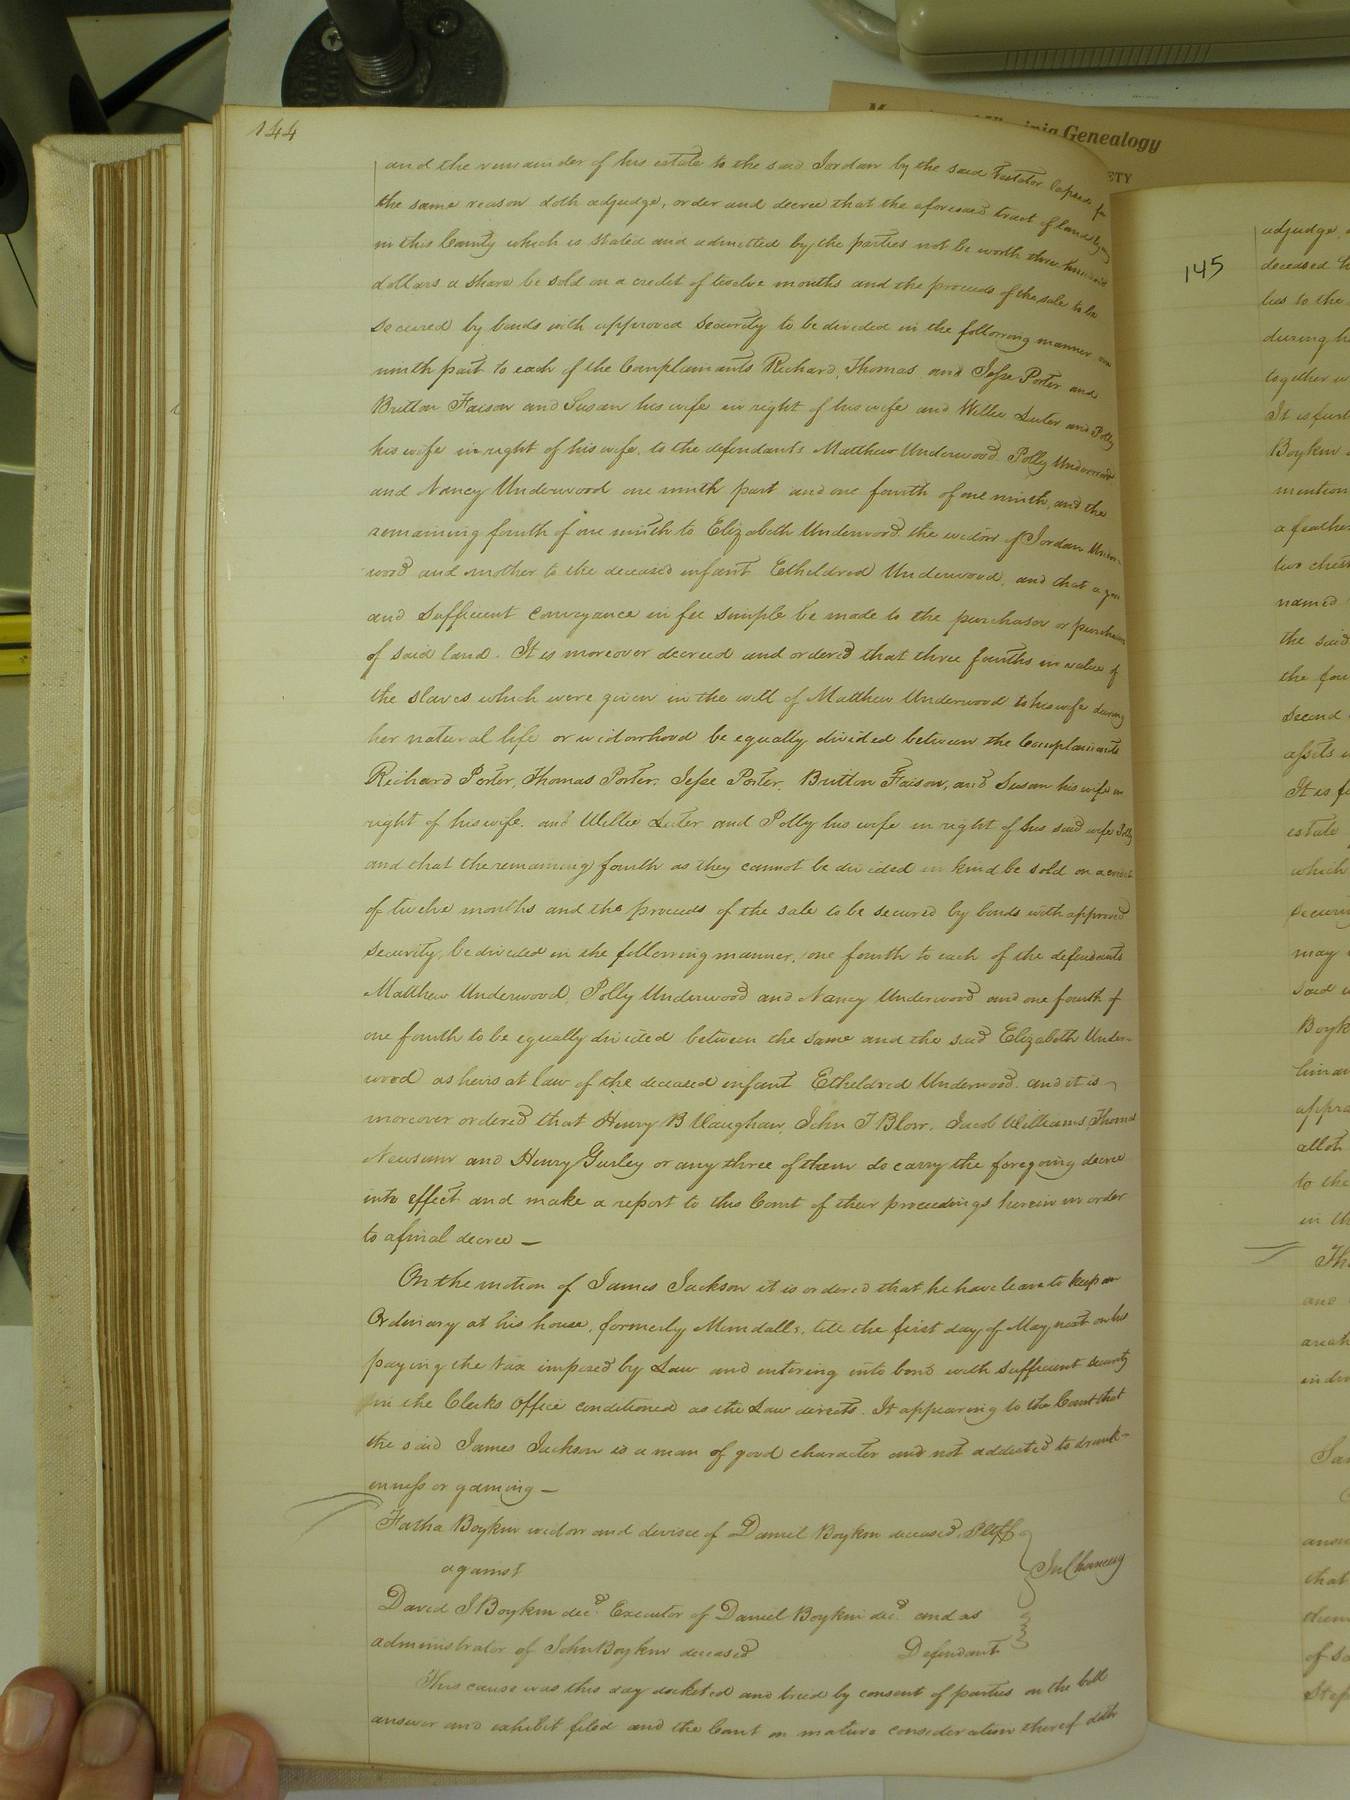 144
and the remainder of his estate to the said Jordan by the said Testator lapsed for
the same reason doth adjudge, order and decree that the aforesaid tract of land lying
in this County which is stated and admitted by the parties not be worth three hundred
dollars a share be sold on a credit of twelve months and the proceeds of the sale to be
secured by bonds with approved security to be divided in the following manner one
ninth part to each of the Complainants Richard, Thomas and Jesse Porter and
Britton Faison and Susan his wife in right of his wife and Willie Luter and Polly
his wife in right of his wife, to the defendants Matthew Underwood Polly Underwood
and Nancy Underwood one ninth part and one fourth of one ninth, and the
remaining fourth of one ninth to Elizabeth Underwood the widow of Jordan Under-
wood and mother to the deceased infant Etheldred Underwood, and that a good
and sufficient conveyance in fee simple be made to the purchaser or purchasers
of said land. It is moreover decreed and ordered that three fourths in value of
the slaves which were given in the will of Matthew Underwood to his wife during
her natural life or widowhood be equally divided between the Complainants
Richard Porter, Thomas Porter, Jesse Porter, Britton Faison, and Susan his wife in
right of his wife. and Willie Luter and Polly his wife in right of his said wife Polly
and that the remaining fourth as they cannot be divided in kind be sold on a credit
of twelve months and the proceeds of the sale to be secured by bonds with approved
security, be divided in the following manner, one fourth to each of the defendants
Matthew Underwood, Polly Underwood and Nancy Underwood and one fourth of
one fourth to be equally divided between the same and the said Elizabeth Under-
wood as heirs at law of the deceased infant Etheldred Underwood. and it is
moreover ordered that Henry B Vaughan, John T Blow, Jacob Williams, Thomas
Newsum and Henry Gurley or any three of them do carry the foregoing decree
into effect and make a report to this Court of their proceedings herein in order
to a final decree —
On the motion of James Jackson it is ordered that he have leave to keep an
Ordinary at his house, formerly Mundalls, till the first day of May next on his
paying the tax imposed by Law and entering into bond with sufficient security
in the Clerks Office conditioned as the Law directs. It appearing to the Court that
the said James Jackson is a man of good character and not addicted to drunk-
enness or gaming —
Fatha Boykin widow and devisee of Daniel Boykin deceased, Pltff
against
In Chancery
David J Boykin decd. Executor of Daniel Boykin decd. and as
administrator of John Boykin deceased Defendant
This cause was this day docketed and tried by consent of parties on the bill
answer and exhibit filed and the Court on mature consideration thereof doth
Genealogy
145
adjudge
deceased
to the
during
together
It is
Boykin
mention
a feather
two
named
the said
the
second
assets
It is
estate
which
may
said
to the
in
and
that
of